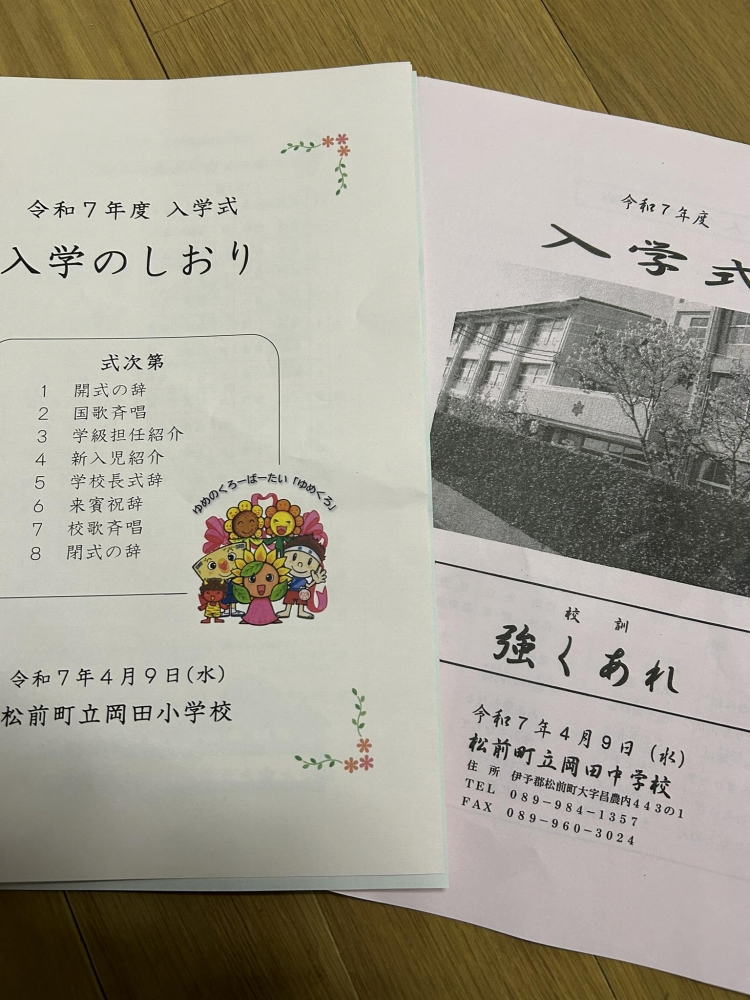 令和7年度 入学式
入学のしおり
式次第
1 開式の辞
2 国歌斉唱
3 学級担任紹介
4 新入児紹介
5 学校長式辞
6 来賓祝辞
7 校歌斉唱
8 閉式の辞
ゆめのくろーばーたい「ゆめくろ」
令和7年4月9日(水)
松前町立岡田小学校
令和7年度
入学式
校訓
強くあれ
令和7年4月9日(水)
松前町立岡田中学校
住所 伊予郡松前町大字昌農内443の1
TEL 089-984-1357
FAX 089-960-3024